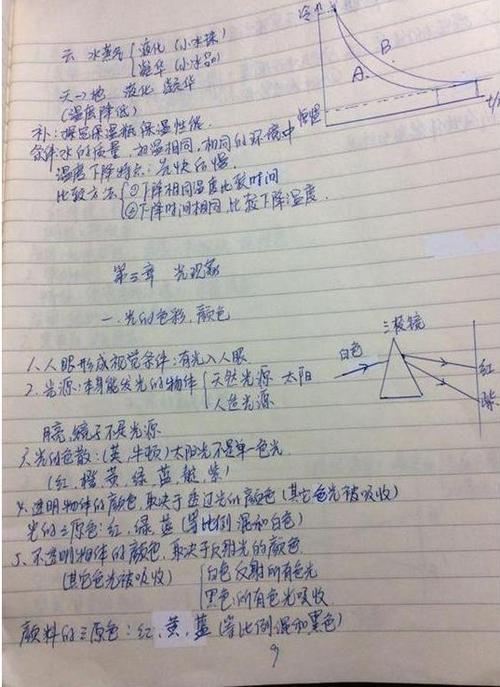 云 水蒸气 液化(小水珠)
凝华(小冰晶)
天→地 液化 凝华
(温度降低)
补:探究保温瓶保温性能.
条件:水的质量,初温相同,相同的环境中
温度下降特点:先快后慢.
比较方法 ①下降相同温度比较时间
②下降时间相同,比较下降温度.
A
B
第三章 光现象
一.光的色彩,颜色
1.人眼形成视觉条件:有光入人眼
2.光源:本身能发光的物体 天然光源 太阳
人造光源
月亮,镜子不是光源
3.光的色散:(英,牛顿)太阳光不是单一色光
(红,橙,黄,绿,蓝,靛,紫)
三棱镜
白色
红
紫
4.透明物体的颜色,取决于透过光的颜色(其它色光被吸收)
光的三原色:红,绿,蓝(等比例混和白色)
5.不透明物体的颜色,取决于反射光的颜色.
(其它色光被吸收) 白色反射所有色光
黑色:所有色光吸收
颜料的三原色:红,黄,蓝(等比例混和黑色)
9